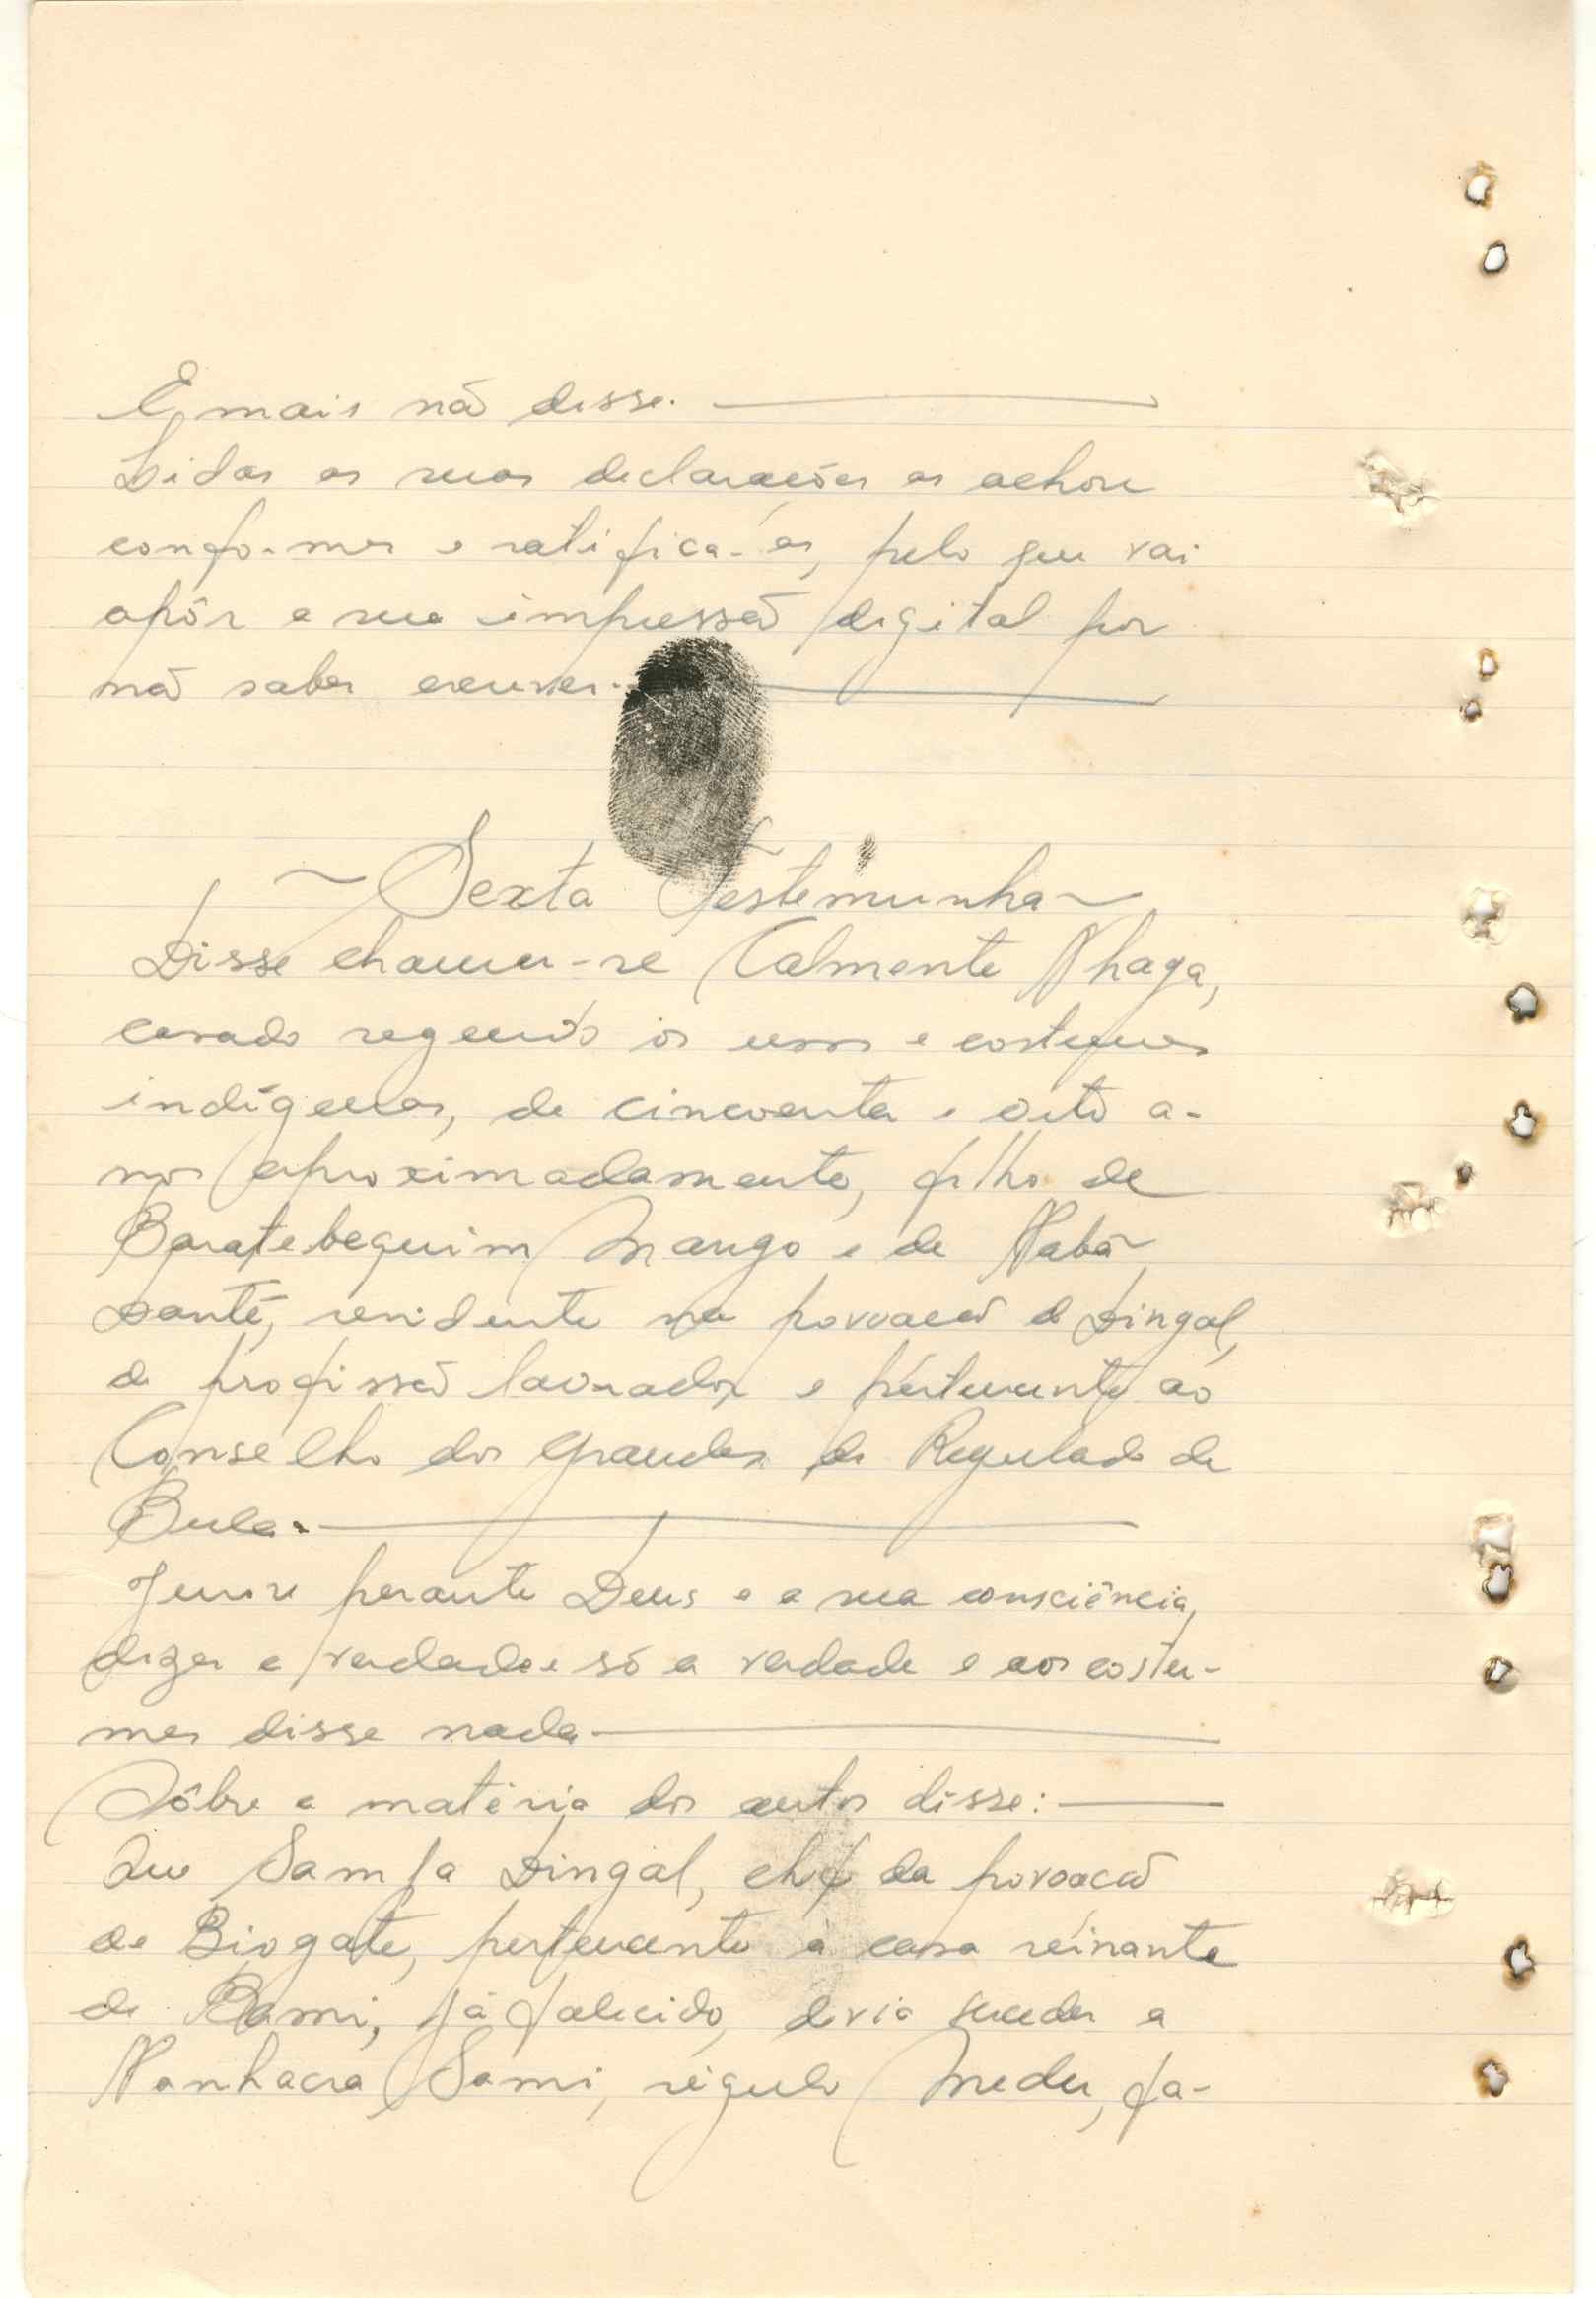 E mais não disse.
Lidas as suas declarações as achou
conformes e ratifica-as, pelo que vai
apôr a sua impressão digital por
não saber escrever.
~ Sexta Testemunha ~
Disse chamar-se Calmente Nhaga,
casado segundo os usos e costumes
indígenas, de cincoenta e oito a-
nos aproximadamente, filho de
Baratebequim Mango e de Nabã
Santé, residente na povoação de Dingal,
de profissão lavrador e pertencente ao
Conselho dos Grandes do Regulado de
Bula.
Jurou perante Deus e a sua consciência,
dizer a verdade e só a verdade e aos costu-
mes disse nada
Sôbre a matéria dos autos disse:
Que Samba Dingal, chefe da povoação
de Biogate, pertencente à casa reinante
de Bami, já falecido, devia suceder a
Nanhacra Sami, régulo Medu, fa-